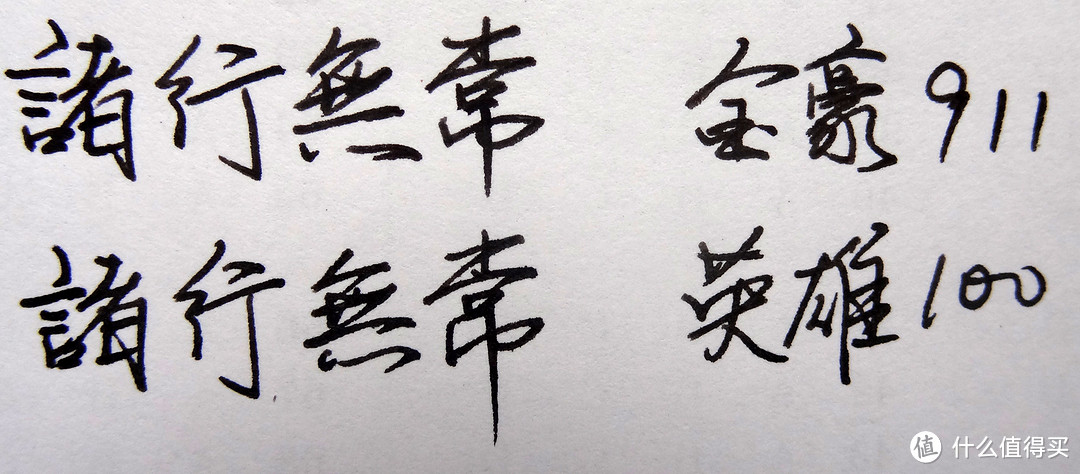 諸行無常 金豪911
諸行無常 英雄100
值 什么值得买